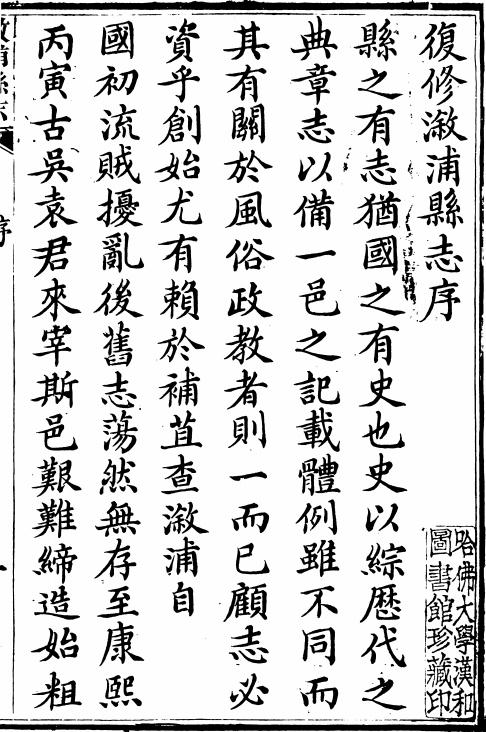 復修漵浦縣志序
縣之有志猶國之有史也史以綜歷代之
典章志以備一邑之記載體例雖不同而
其有關於風俗政教者則一而已顧志必
資乎創始尤有賴於補苴查漵浦自
國初流賊擾亂後舊志蕩然無存至康熙
丙寅古吳袁君來宰斯邑艱難締造始粗
序
哈佛大學漢和
圖書館珍藏印